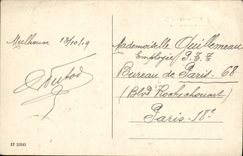 Mulhouse 13/10/19
Mademoiselle Guillemeau
Employée P.T.T
Bureau de Paris 68
(Blvd Rochechouart)
Paris 18e